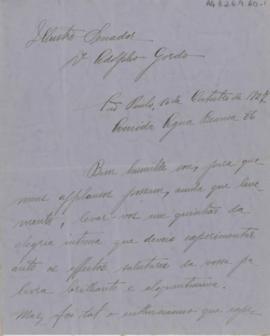 Illustre Senador
Dr Adolpho Gordo
São Paulo, 10 de Outubro de
Avenida Agua Branca 86
Bem humilde sou, para que
meus applausos possam, ainda que leve-
mente, levar-vos um quinhão da
alegria intima que deveis experimentar
ante os effeitos salutares da vossa pa-
lavra brilhante e eloquentissima.
Mas, foi tal o enthusiasmo que